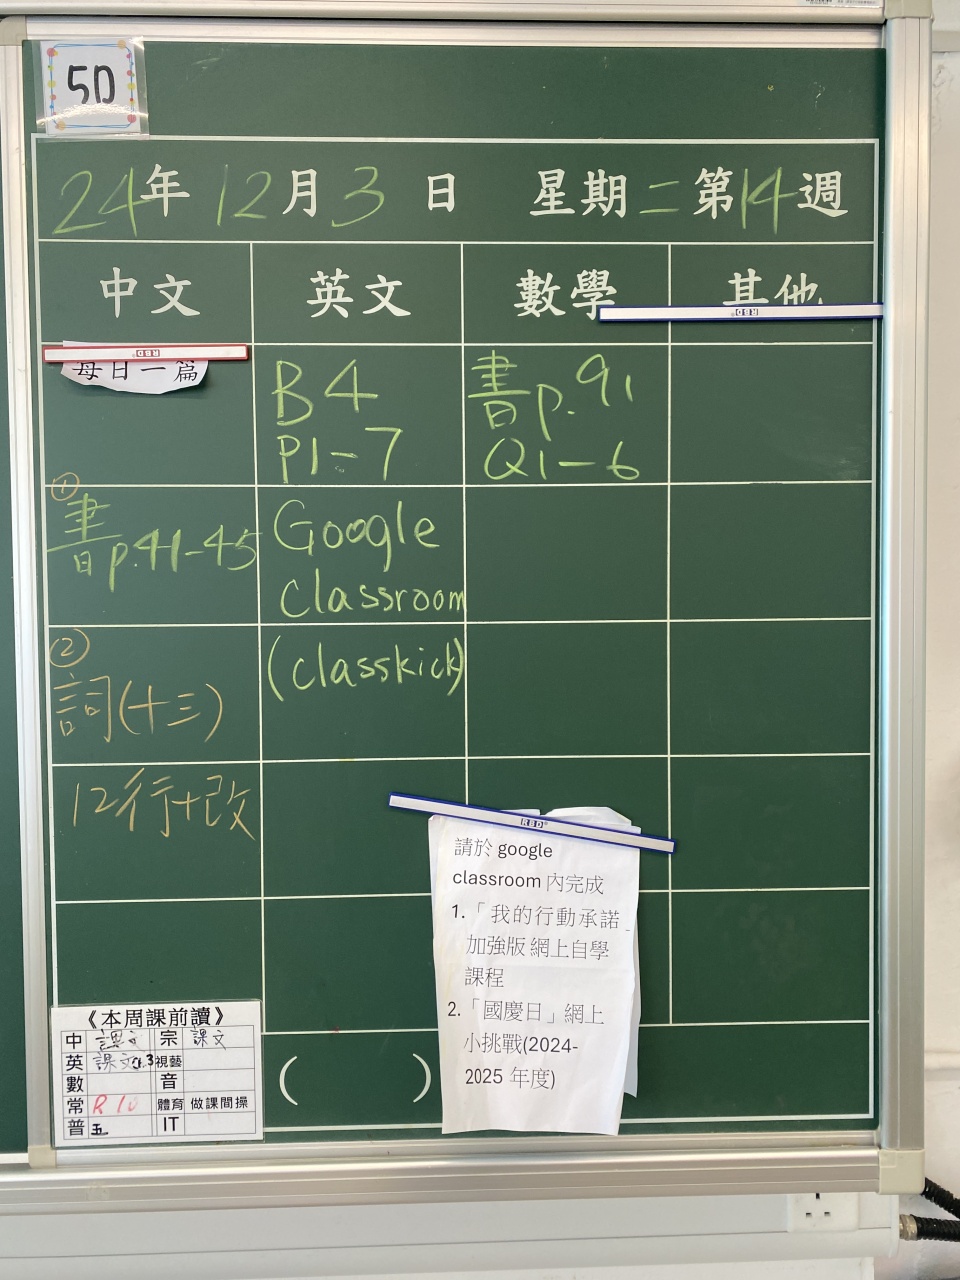 5D
24年 12月3日 星期二第14週
中文 英文 數學 其他
RBD
RBD
每日一篇
B4
P1-7
書p.91
Q1-6
①
書p.41-45
Google
Classroom
(classkick)
②
詞(十三)
12行+改
RBD
請於 google
classroom 內完成
1.「我的行動承諾」
加強版 網上自學
課程
2.「國慶日」網上
小挑戰(2024-
2025 年度)
《本周課前讀》
中 課文 宗 課文
英 課文 視藝
數 音
常 R 10 體育 做課間操
普 五 IT
( )